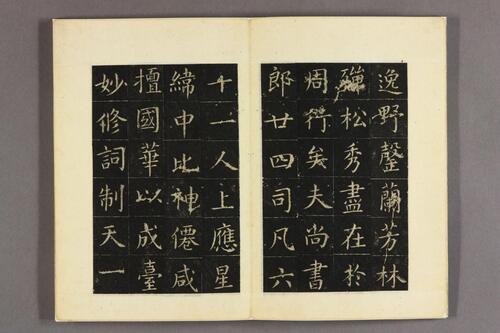 逸野罄蘭芳林
松秀盡在於
周行矣夫尚書
郎廿四司凡六
十一人上應星
緯中比神僊咸
擅國華以成臺
妙修詞制天一